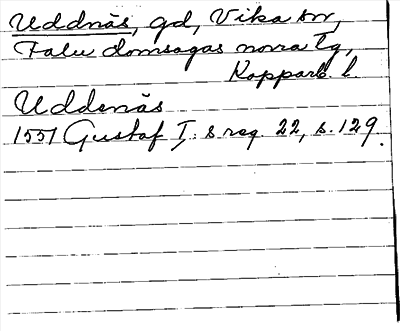 Uddnäs, gd, Vika sn,
Falu domsagas norra tg,
Kopparb. l.
Uddenäs
1551 Gustaf I:s reg. 22, s. 129.